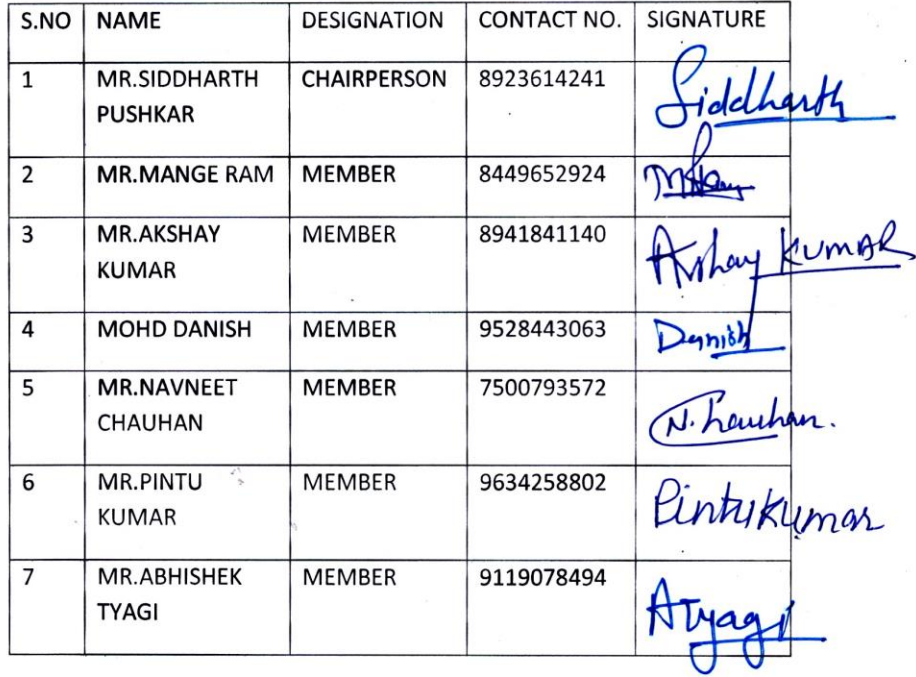 S.NO NAME DESIGNATION CONTACT NO. SIGNATURE
1 MR.SIDDHARTH CHAIRPERSON 8923614241 Siddharth
PUSHKAR
2 MR.MANGE RAM MEMBER 8449652924
3 MR.AKSHAY MEMBER 8941841140 Akshay KUMAR
KUMAR
4 MOHD DANISH MEMBER 9528443063 Danish
5 MR.NAVNEET MEMBER 7500793572 N.Chauhan.
CHAUHAN
6 MR.PINTU MEMBER 9634258802 Pintu Kumar
KUMAR
7 MR.ABHISHEK MEMBER 9119078494 ATyagi
TYAGI